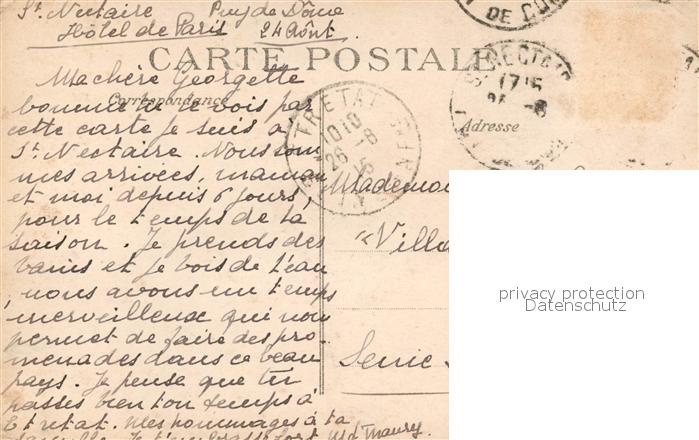 St. Nectaire Puy de Dôme
Hôtel de Paris 24 Août.
CARTE POSTALE
Correspondance
Adresse
Ma chère Georgette
comme tu le vois par
cette carte je suis à
St. Nectaire. Nous som
mes arrivées, maman
et moi depuis 6 jours,
pour le temps de la
saison. Je prends des
bains et je bois de l'eau
, nous avons un temps
merveilleux qui nous
permet de faire des pro
menades dans ce beau
pays. Je pense que tu
passes bien ton temps à
Etretat. Mes hommages à ta
famille. Je t'embrasse fort
Mademoi
"Villa
ETRETAT
10 10
26 -8
ST NECTAIRE
privacy protection
Datenschutz